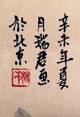 辛未年夏
月瑞君画
於北京